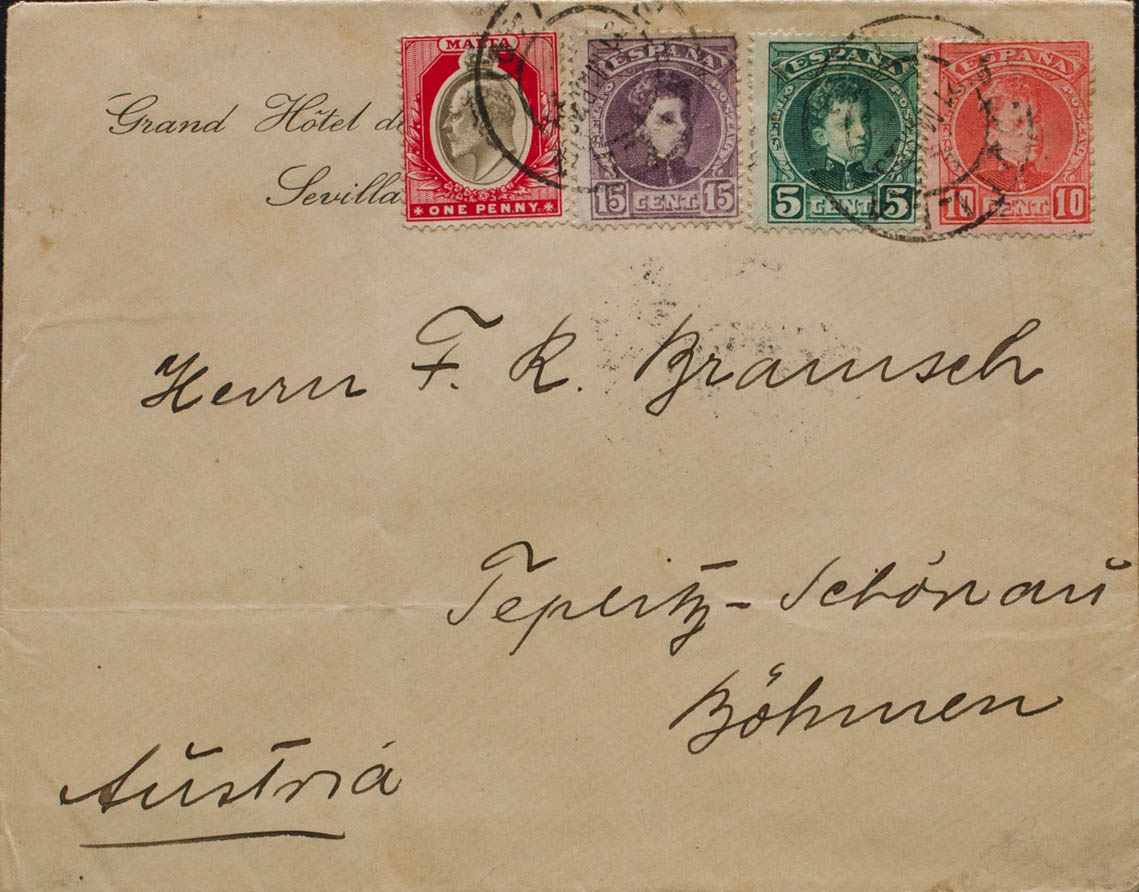 Grand Hôtel de
Sevilla
MALTA
ONE PENNY
ESPAÑA
15 CENT. 15
ESPAÑA
5 CENT. 5
ESPAÑA
10 CENT. 10
Herrn F. R. Bramsch
Teplitz-Schönau
Böhmen
Austria